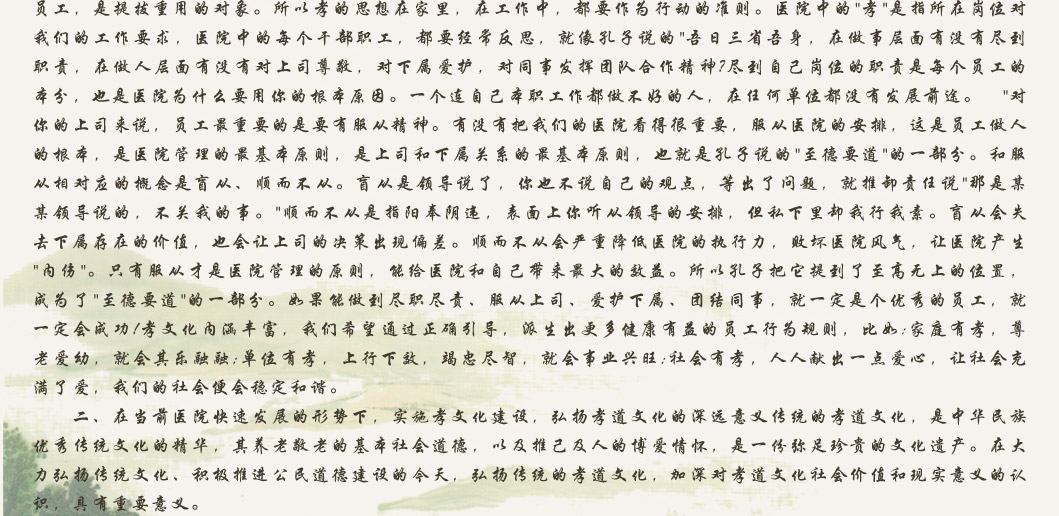 员工，是提拔重用的对象。所以孝的思想在家里，在工作中，都要作为行动的准则。医院中的"孝"是指所在岗位对
我们的工作要求，医院中的每个干部职工，都要经常反思，就像孔子说的"吾日三省吾身，在做事层面有没有尽到
职责，在做人层面有没有对上司尊敬，对下属爱护，对同事发挥团队合作精神?尽到自己岗位的职责是每个员工的
本分，也是医院为什么要用你的根本原因。一个连自己本职工作都做不好的人，在任何单位都没有发展前途。 "对
你的上司来说，员工最重要的是要有服从精神。有没有把我们的医院看得很重要，服从医院的安排，这是员工做人
的根本，是医院管理的最基本原则，是上司和下属关系的最基本原则，也就是孔子说的"至德要道"的一部分。和服
从相对应的概念是盲从、顺而不从。盲从是领导说了，你也不说自己的观点，等出了问题，就推卸责任说"那是某
某领导说的，不关我的事。"顺而不从是指阳奉阴违，表面上你听从领导的安排，但私下里却我行我素。盲从会失
去下属存在的价值，也会让上司的决策出现偏差。顺而不从会严重降低医院的执行力，败坏医院风气，让医院产生
"内伤"。只有服从才是医院管理的原则，能给医院和自己带来最大的效益。所以孔子把它提到了至高无上的位置，
成为了"至德要道"的一部分。如果能做到尽职尽责、服从上司、爱护下属、团结同事，就一定是个优秀的员工，就
一定会成功!孝文化内涵丰富，我们希望通过正确引导，派生出更多健康有益的员工行为规则，比如:家庭有孝，尊
老爱幼，就会其乐融融;单位有孝，上行下效，竭忠尽智，就会事业兴旺;社会有孝，人人献出一点爱心，让社会充
满了爱，我们的社会便会稳定和谐。
二、在当前医院快速发展的形势下，实施孝文化建设，弘扬孝道文化的深远意义传统的孝道文化，是中华民族
优秀传统文化的精华，其养老敬老的基本社会道德，以及推己及人的博爱情怀，是一份弥足珍贵的文化遗产。在大
力弘扬传统文化、积极推进公民道德建设的今天，弘扬传统的孝道文化，加深对孝道文化社会价值和现实意义的认
识，具有重要意义。